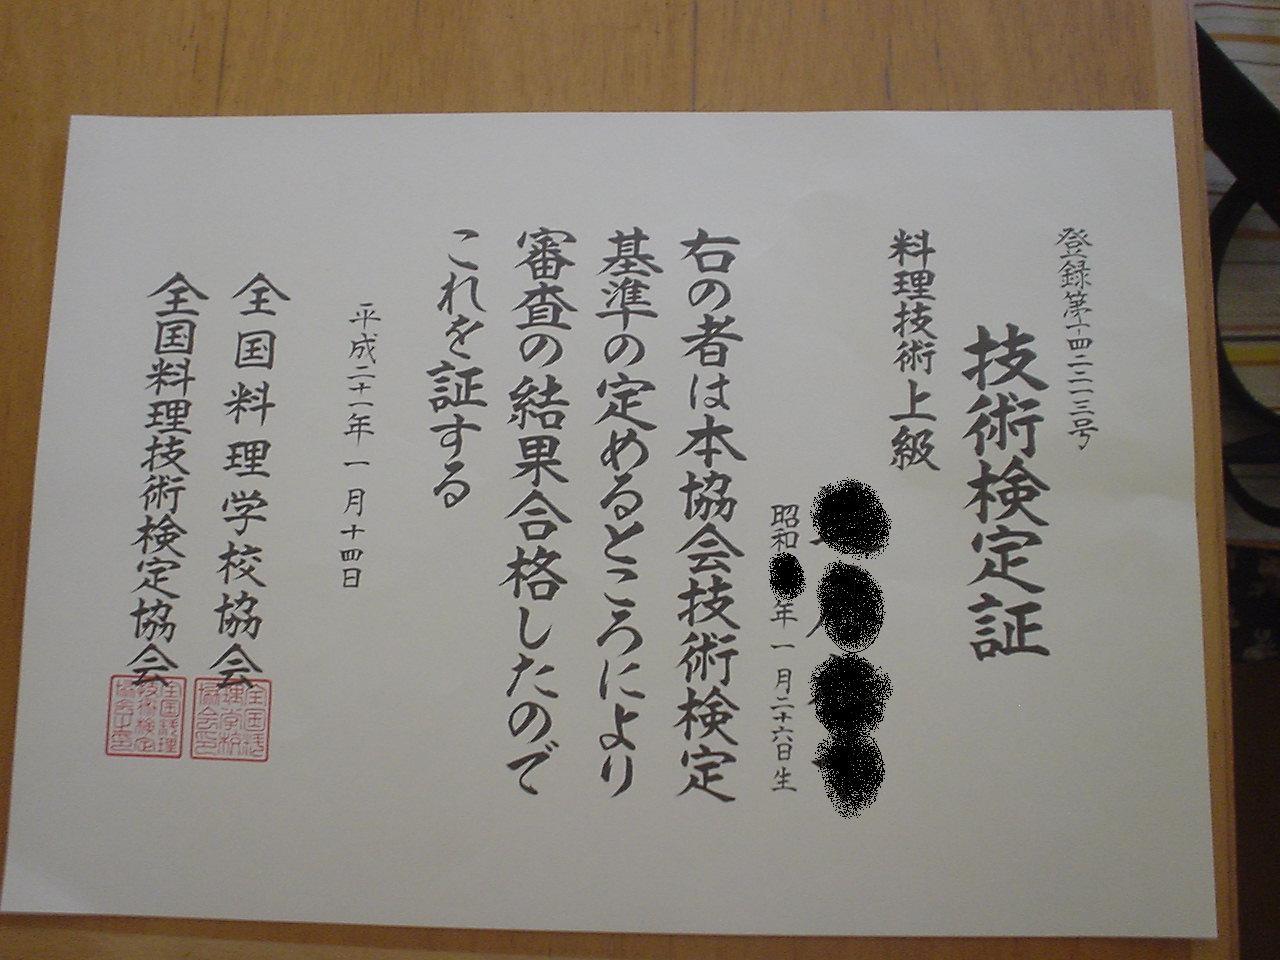 登録第十四二二一三号
技術検定証
料理技術上級
昭和 年一月二十六日生
右の者は本協会技術検定
基準の定めるところにより
審査の結果合格したので
これを証する
平成二十一年一月十四日
全国料理学校協会
全国料理技術検定協会